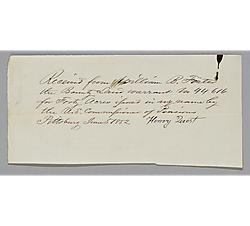 Received from William B. Foster
the Bounty Land warrant No 44616
for Forty Acres issued in my name by
the Commissioner of Pensions
Pittsburg June 5 1852 Henry